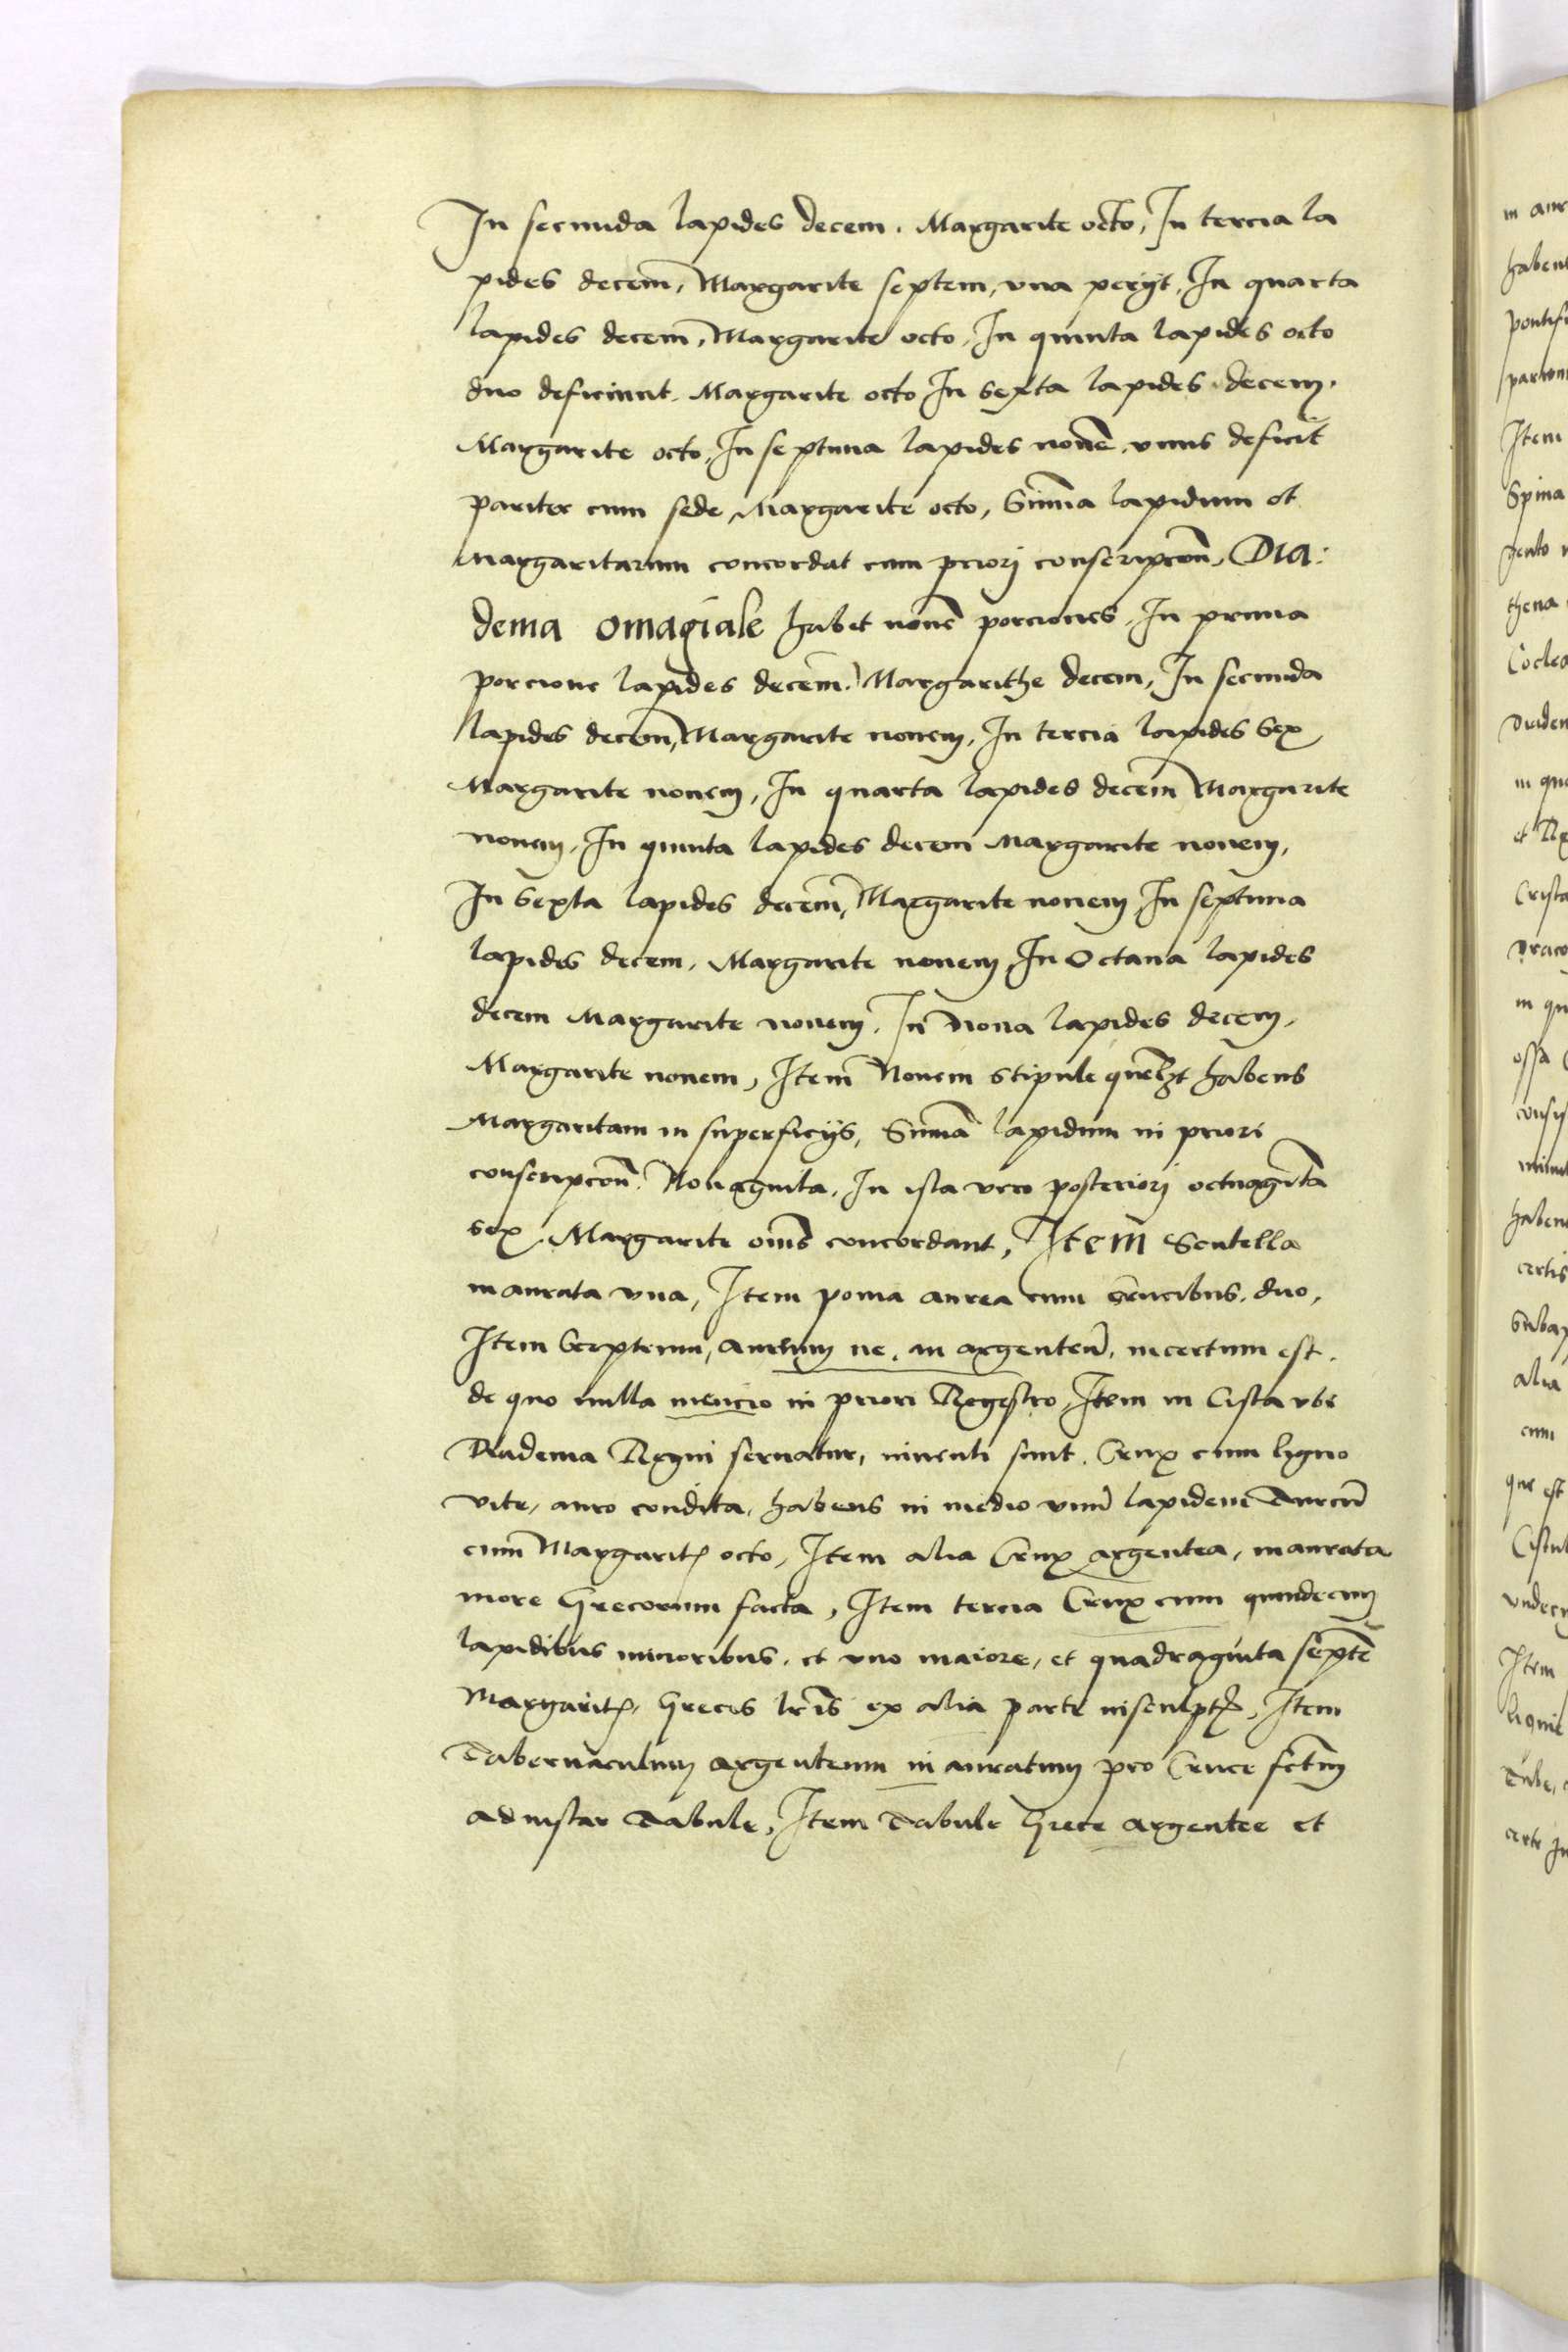 In secunda lapides decem. Margarite octo, In tercia la
pides decem̄, Margarite septem, vna perijt, In quarta
lapides decem̄, Margarite octo, In quinta lapides octo
duo deficiunt. Margarite octo In sexta lapides decem.
Margarite octo, In septima lapides novē, vnus deficit
pariter cum sede, Margarite octo, Sum̄a lapidum et
margaritarum concordat cum priorj conscripcōn̄, Dia:
dema Omagiale habet novē porciones, In prima
porcione lapides decem̄. Margarithe decem, In secunda
lapides decem̄, Margarite nouem, In tercia lapides sex
Margarite nouem, In quarta lapides decem̄ Margarite
nouem, In quinta lapides decem Margarite nouem,
In sexta lapides decem̄, Margarite nouem In septima
lapides decem, Margarite nouem, In Octaua lapides
decem Margarite nouem, In Nona lapides decem,
Margarite nouem, Item̄ Nouem stipule habens
Margaritam in superficijs, Sum̄a lapidum in priori
conscripcōn̄. Nonaginta, In ista vero posteriorj octuagīta
sex, Margarite om̄s concordant, Item Scutella
inaurata vna, Item poma aurea cum crucibus, duo,
Item Sceptrum, aureum ne, an argenteū, incertum est.
de quo nulla mencio in priori Regestro, Item in Cista vbi
Diadema Regni seruatur, inuenti sunt. Crux cum ligno
vite, auro condita, habens in medio vnū lapidem
cum Margaritꝭ octo, Item alia Crux argentea, inaurata
more Grecorum facta, Item tercia Crux cum quindecim
lapidibus minoribus, et vno maiore, et quadraginta septē
Margaritꝭ, Grecis lr̄is ex alia parte insculptꝭ, Item
Tabernaculum argenteum in auratum pro Cruce fctm̄
ad instar Tabule, Item Tabule Grece argentee et
in aur
habent
pontifi
Item
Spina
gento
thena
diadem
in qu
Crista
draco
in qu
ossa
habent
certis
alia
cum
que est
Item